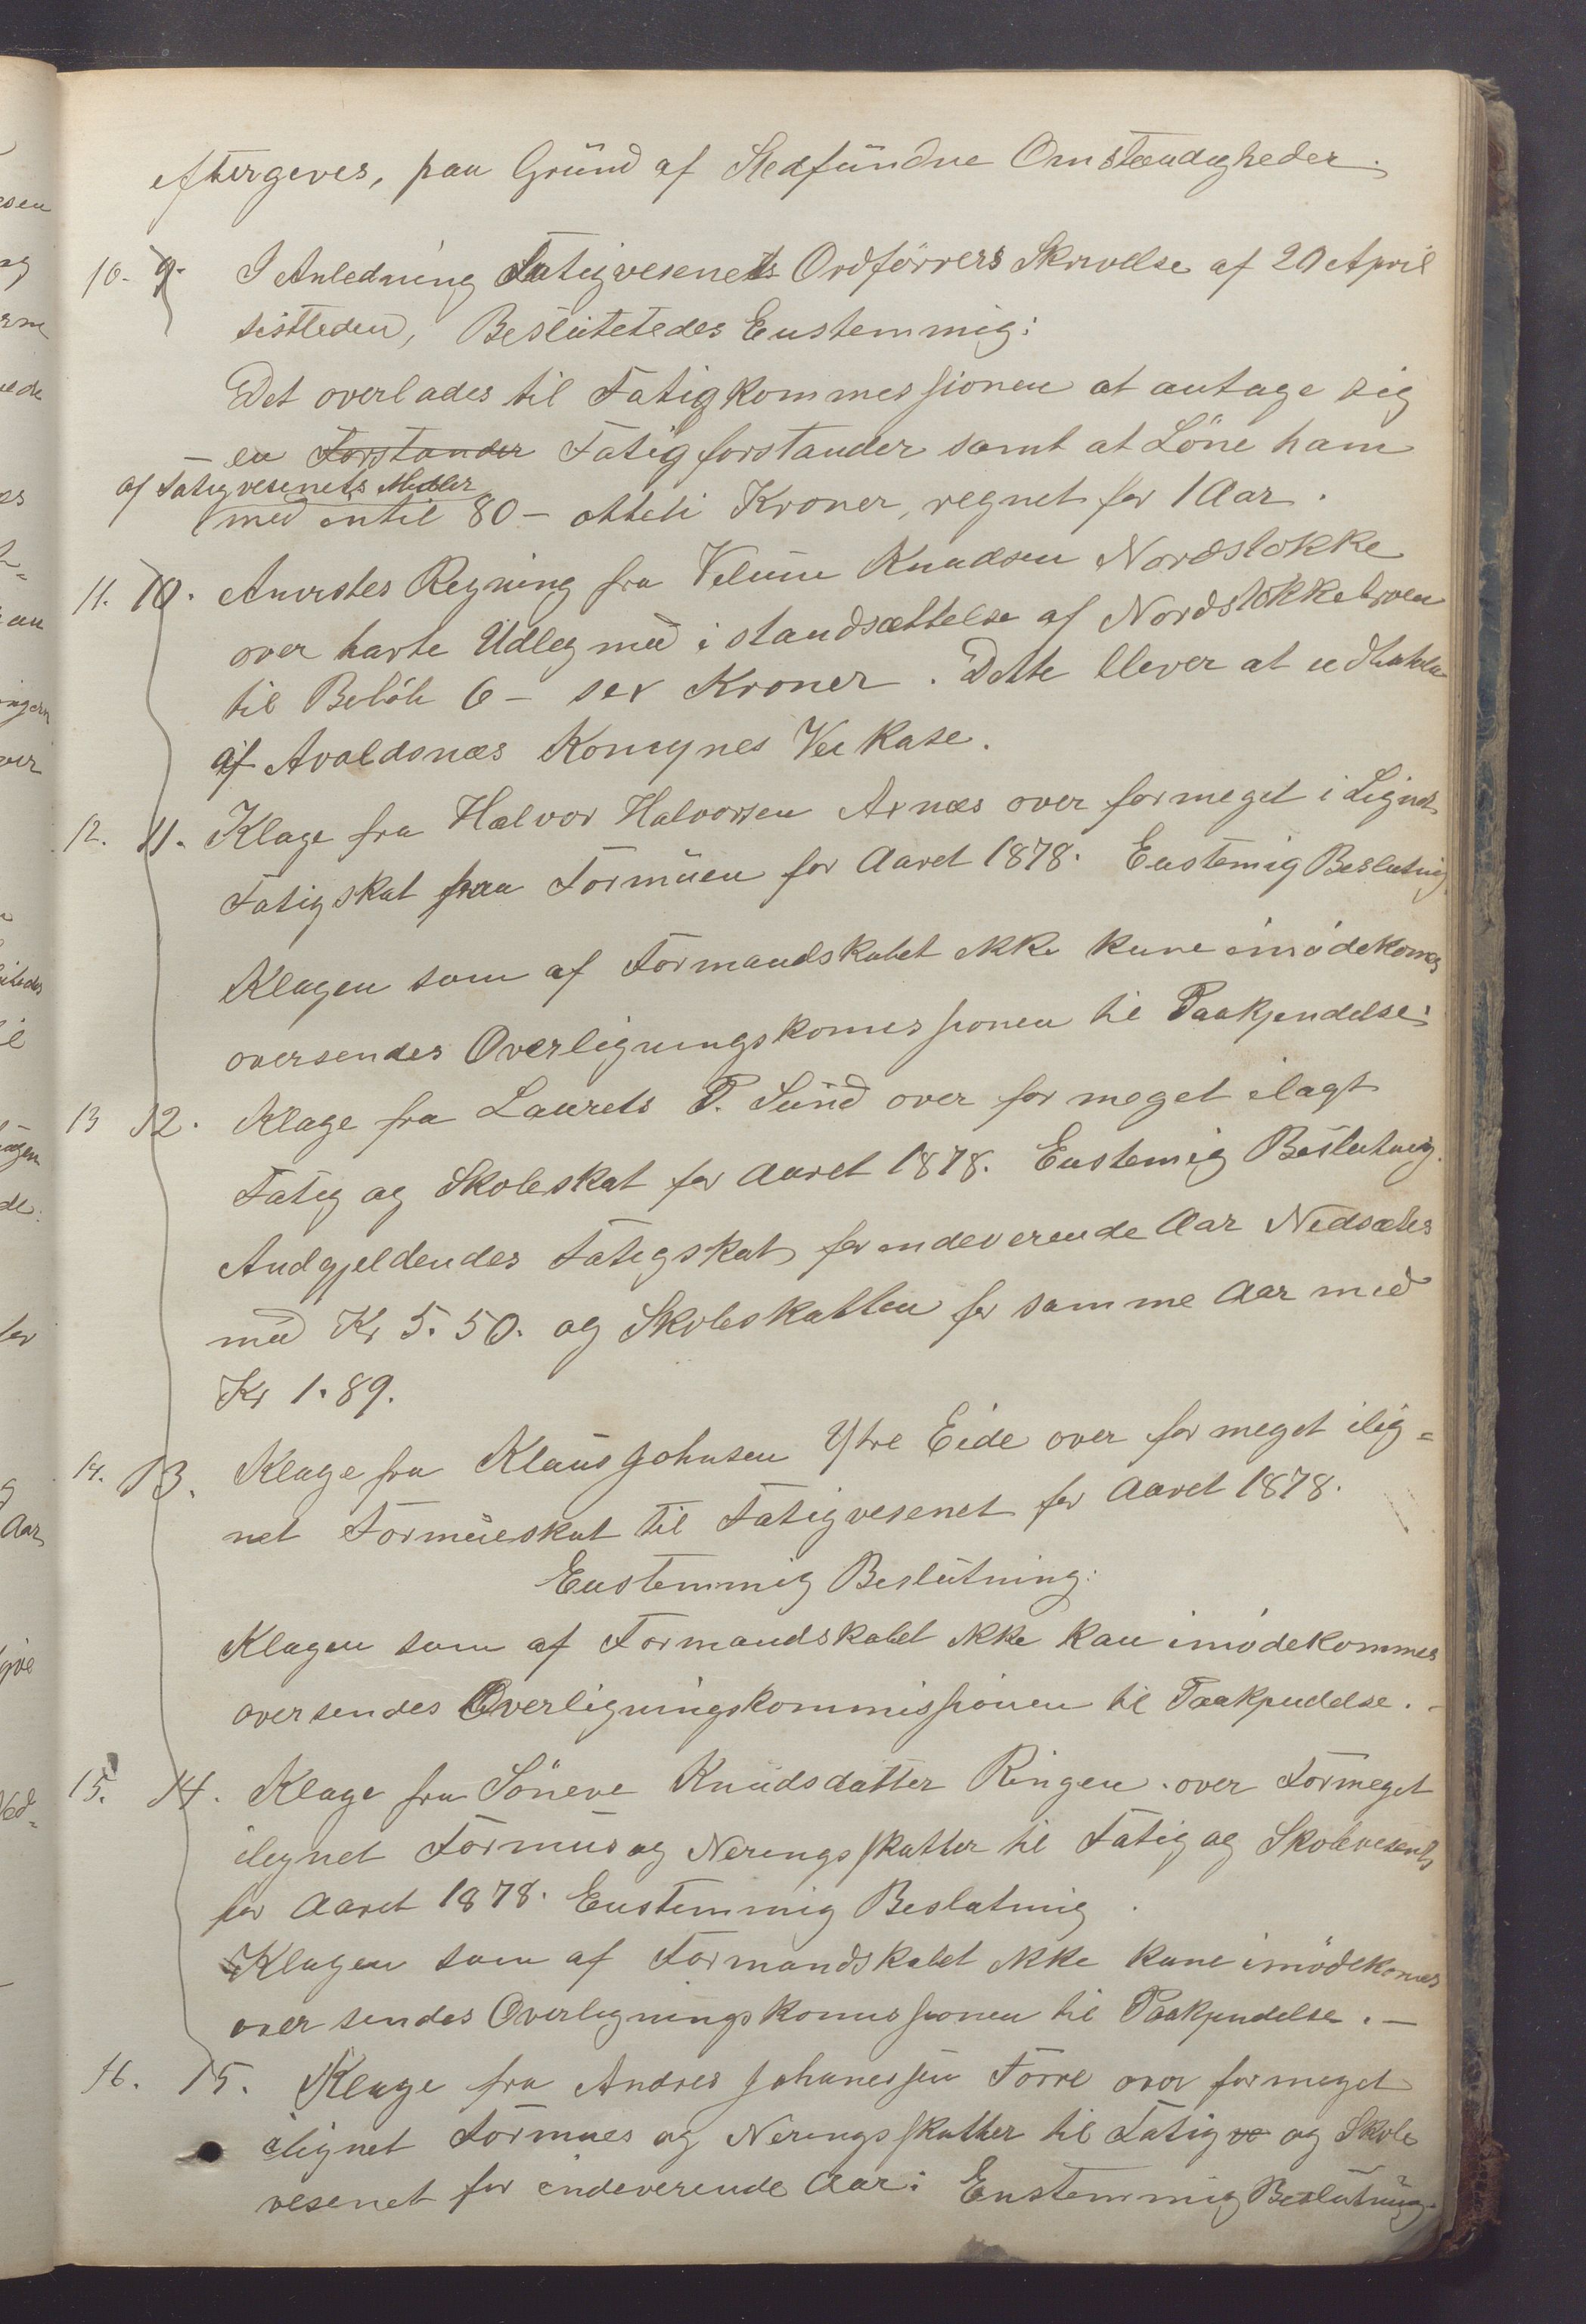 eftergives, paa Grund af Stedfundne Omstændigheder.
10. 9. I Anledning Fatigvesenets Ordförrers Skrivelse af 20 April
sistleden, Beslutetedes Enstemmig:
Det overlades til Fatigkommessionen at antage sig
en Forstander Fatigforstander samt at Löne ham
af Fatigvesenets Midler
med intil 80 - otteti Kroner, regnet for 1 Aar.
11. 10. Anvistes Regning fra Knudsen Nordstokke
over havte Udleg med i standsættelse af Nordstokkebroen
til Belöb 6 - sex Kroner. Dette blever at udbetale
af Avaldsnæs Komynes Vei Kase.
12. 11. Klage fra Halvor Halvorsen Axnæs over formeget i Lignet
Fatigskat paa Formuen for Aaret 1878. Enstemig Beslutnig
Klagen som af Formandskabet ikke kune imödekomes
oversendes Overligningskomissionen til Paakjendelse:
13 12. Klage fra Laurets P. Sund over for meget ilagt
Fatig og Skoleskat for Aaret 1878. Enstemig Beslutnig.
Andgjeldendes Fatigskat for indeverende Aar Nedsætes
med Kr 5.50. og Skoleskatten for samme Aar med
Kr 1.89.
14. 13. Klage fra Klaus Johnsen Ytre Eide over for meget ilig=
net Formueskat til Fatigvesenet for Aaret 1878.
Enstemmig Beslutning:
Klagen som af Formandskabet ikke kan imödekommes
oversendes Overligningskommissionen til Paakjendelse. -
15. 14. Klage fra Söneve Knudsdatter Ringen. over Formeget
ilignet Formus og Nerings skatter til Fatig og Skolevesents
for Aaret 1878. Enstemmig Beslutnig.
Klagen som af Formandskabet ikke kune imödekomes
over sendes Overlignings komissionen til Paakjendelse. -
16. 15. Klage fra Andres Johanessen Förre over formeget
ilignet Formues og Nerings skatter til Fatig ve og Skole
vesenet for indeverende Aar: Enstemmig Beslutning.